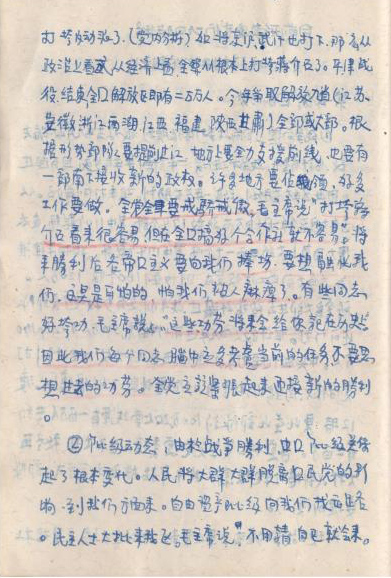 打垮的动摇了。(宽力分析)如将京沪武汉也打下,那么从
政治上看或从经济上看全部从根本上打垮蒋介石了。平津战
役,结束全口解放区即有二万万人。今年争取解放九省(江苏
安徽 浙江 两湖 江西 福建 陕西 甘肃)全部或大部。根
据形势部队要提到过江 地方上要全力支援前线,也要有
一部南下接收新的政权。许多地方要
工作要做。全党全军要戒骄戒傲,毛主席说"打垮蒋
介石看来很容易,但在全口搞好合作社就不容易。"将
来胜利后各帝口主义要向我们捧场,要想融化我
们,这是可怕的,怕我们被人麻痹了。有些同志
好夸功,毛主席说:"这些功劳将来会给你记在历史"
因此我们每个同志 脑中应多考虑当前的任务不要思
想过去的功劳。全党应该紧张起来迎接新的胜利
。
②阶级动态 由于战争胜利,中口阶级关系
起了根本变化。人民将大群大群脱离口民党的影
响 到我们方面来。自由资产阶级向我们找
。民主人士大批来 毛主席说"不用请自己就会来。